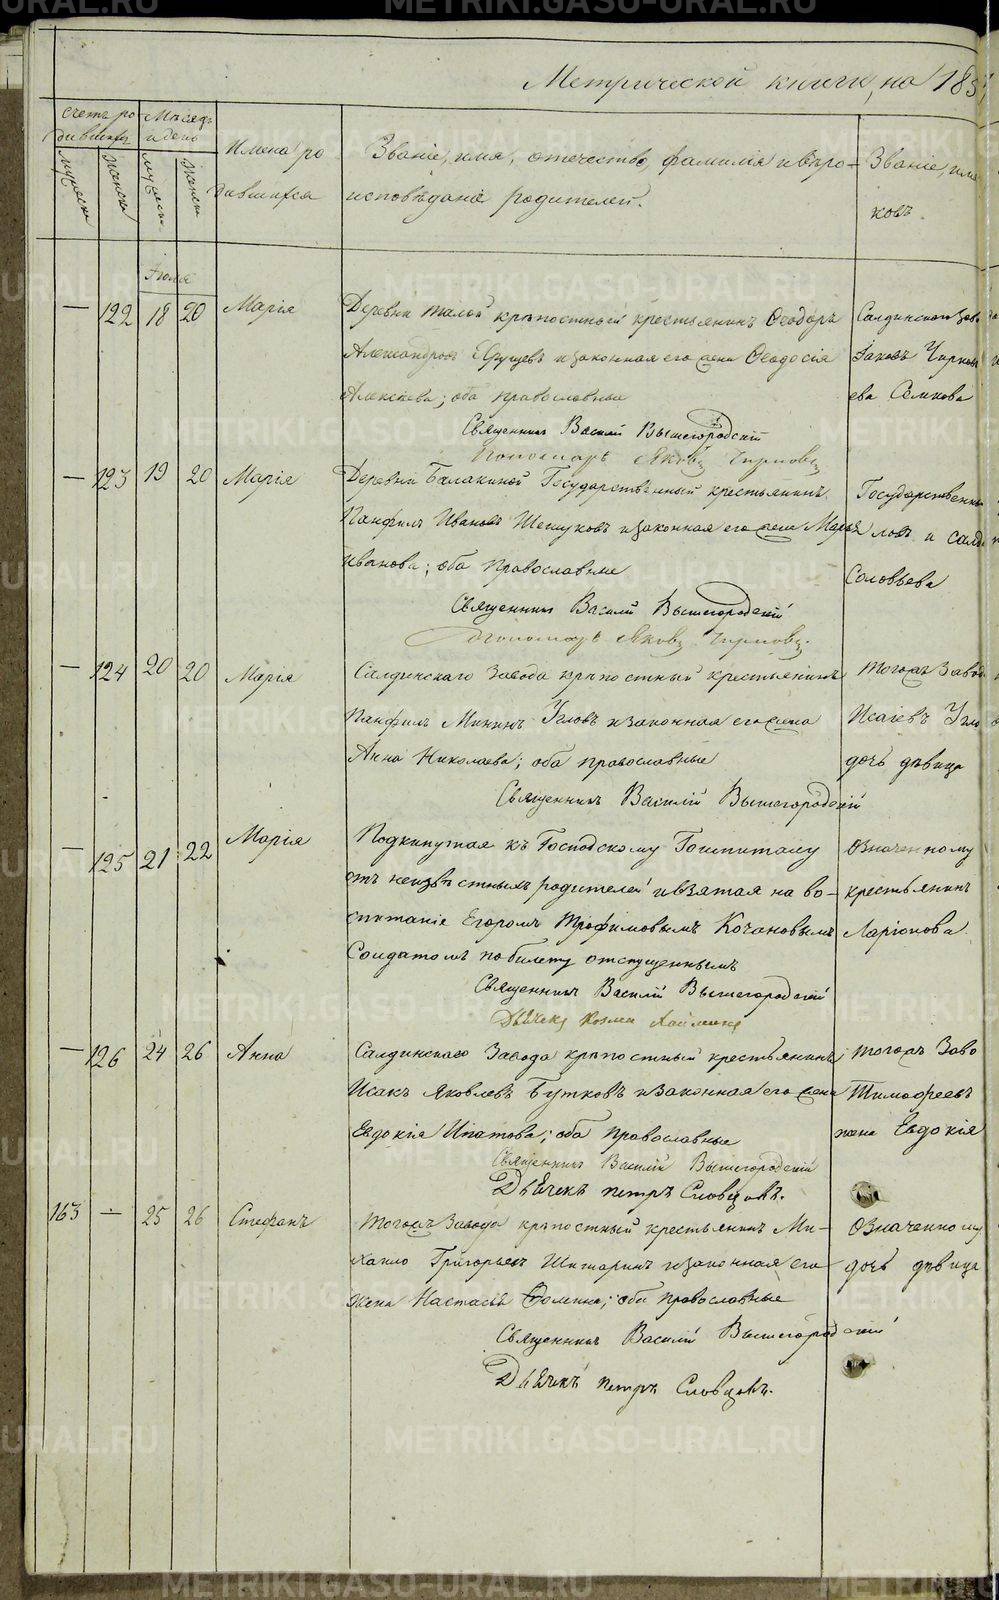 METRIKI.GASO-URAL.RU
Метрической книги, на 185
Счетъ ро-
дившихся
Мѣсяцъ
и день
Имена ро
дившихся
Званіе, имя, отечество, фамилія и вѣро-
исповѣданіе родителей.
Званіе, имя
ковъ.
мужеска
женска
Іюль
— 122 18 20 Марія
Деревни Малой крѣпостной крестьянинъ Ѳеодоръ
Александровъ и законная его жена Ѳеодосія
Алексѣева; оба православные
Священникъ Василій Вышегородскій
Пономарь Яковъ
Салдинскаго заво
Іаковъ
ева
— 123 19 20 Марія
Деревни Балакиной Государственный крестьянинъ
Панфилъ Ивановъ Шешуковъ и законная его жена Марья
Иванова; оба православные
Священникъ Василій Вышегородскій
Пономарь Яковъ
Государственны
ловъ и салд
Соловьева
— 124 20 20 Марія
Салдинскаго завода крѣпостный крестьянинъ
Панфилъ Мининъ Угловъ и законная его жена
Анна Николаева; оба православные
Священникъ Василій Вышегородскій
Тогожъ завод
Исаіевъ Угло
дочь дѣвица
— 125 21 22 Марія
Подкинутая къ Господскому Гошпиталу
отъ неизвѣстныхъ родителей и взятая на во-
спитаніе Егоромъ Трофимовымъ Кочановымъ
Солдатомъ по билету отпущеннымъ
Священникъ Василій Вышегородскій
Дьячекъ Козма
Означенному
крестьянинъ
Ларіонова
— 126 24 26 Анна
Салдинскаго Завода крѣпостный крестьянинъ
Исакъ Яковлевъ Бутковъ и законная его жена
Евдокія Ипатова; оба православные
Священникъ Василій Вышегородскій
Дьячекъ петръ Словцовъ.
Тогожъ Заво
Тимофеевъ
жена Евдокія
163 — 25 26 Стефанъ
Тогожъ Завода крѣпостный крестьянинъ Ми-
хаило Григорьевъ и законная его
жена Настасья Ѳомина; оба православные
Священникъ Василій Вышегородскій
Дьячекъ петръ Словцовъ.
Означенному
дочь дѣвица